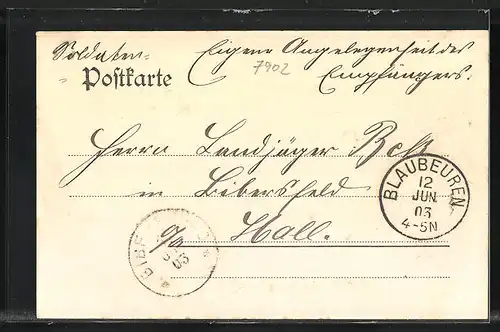 Soldaten- Eigene Angelegenheit des
Postkarte Empfängers.
7902
Herrn Landjäger
in Bibersfeld
Hall.
BLAUBEUREN
12
JUN
03
4-5N
03